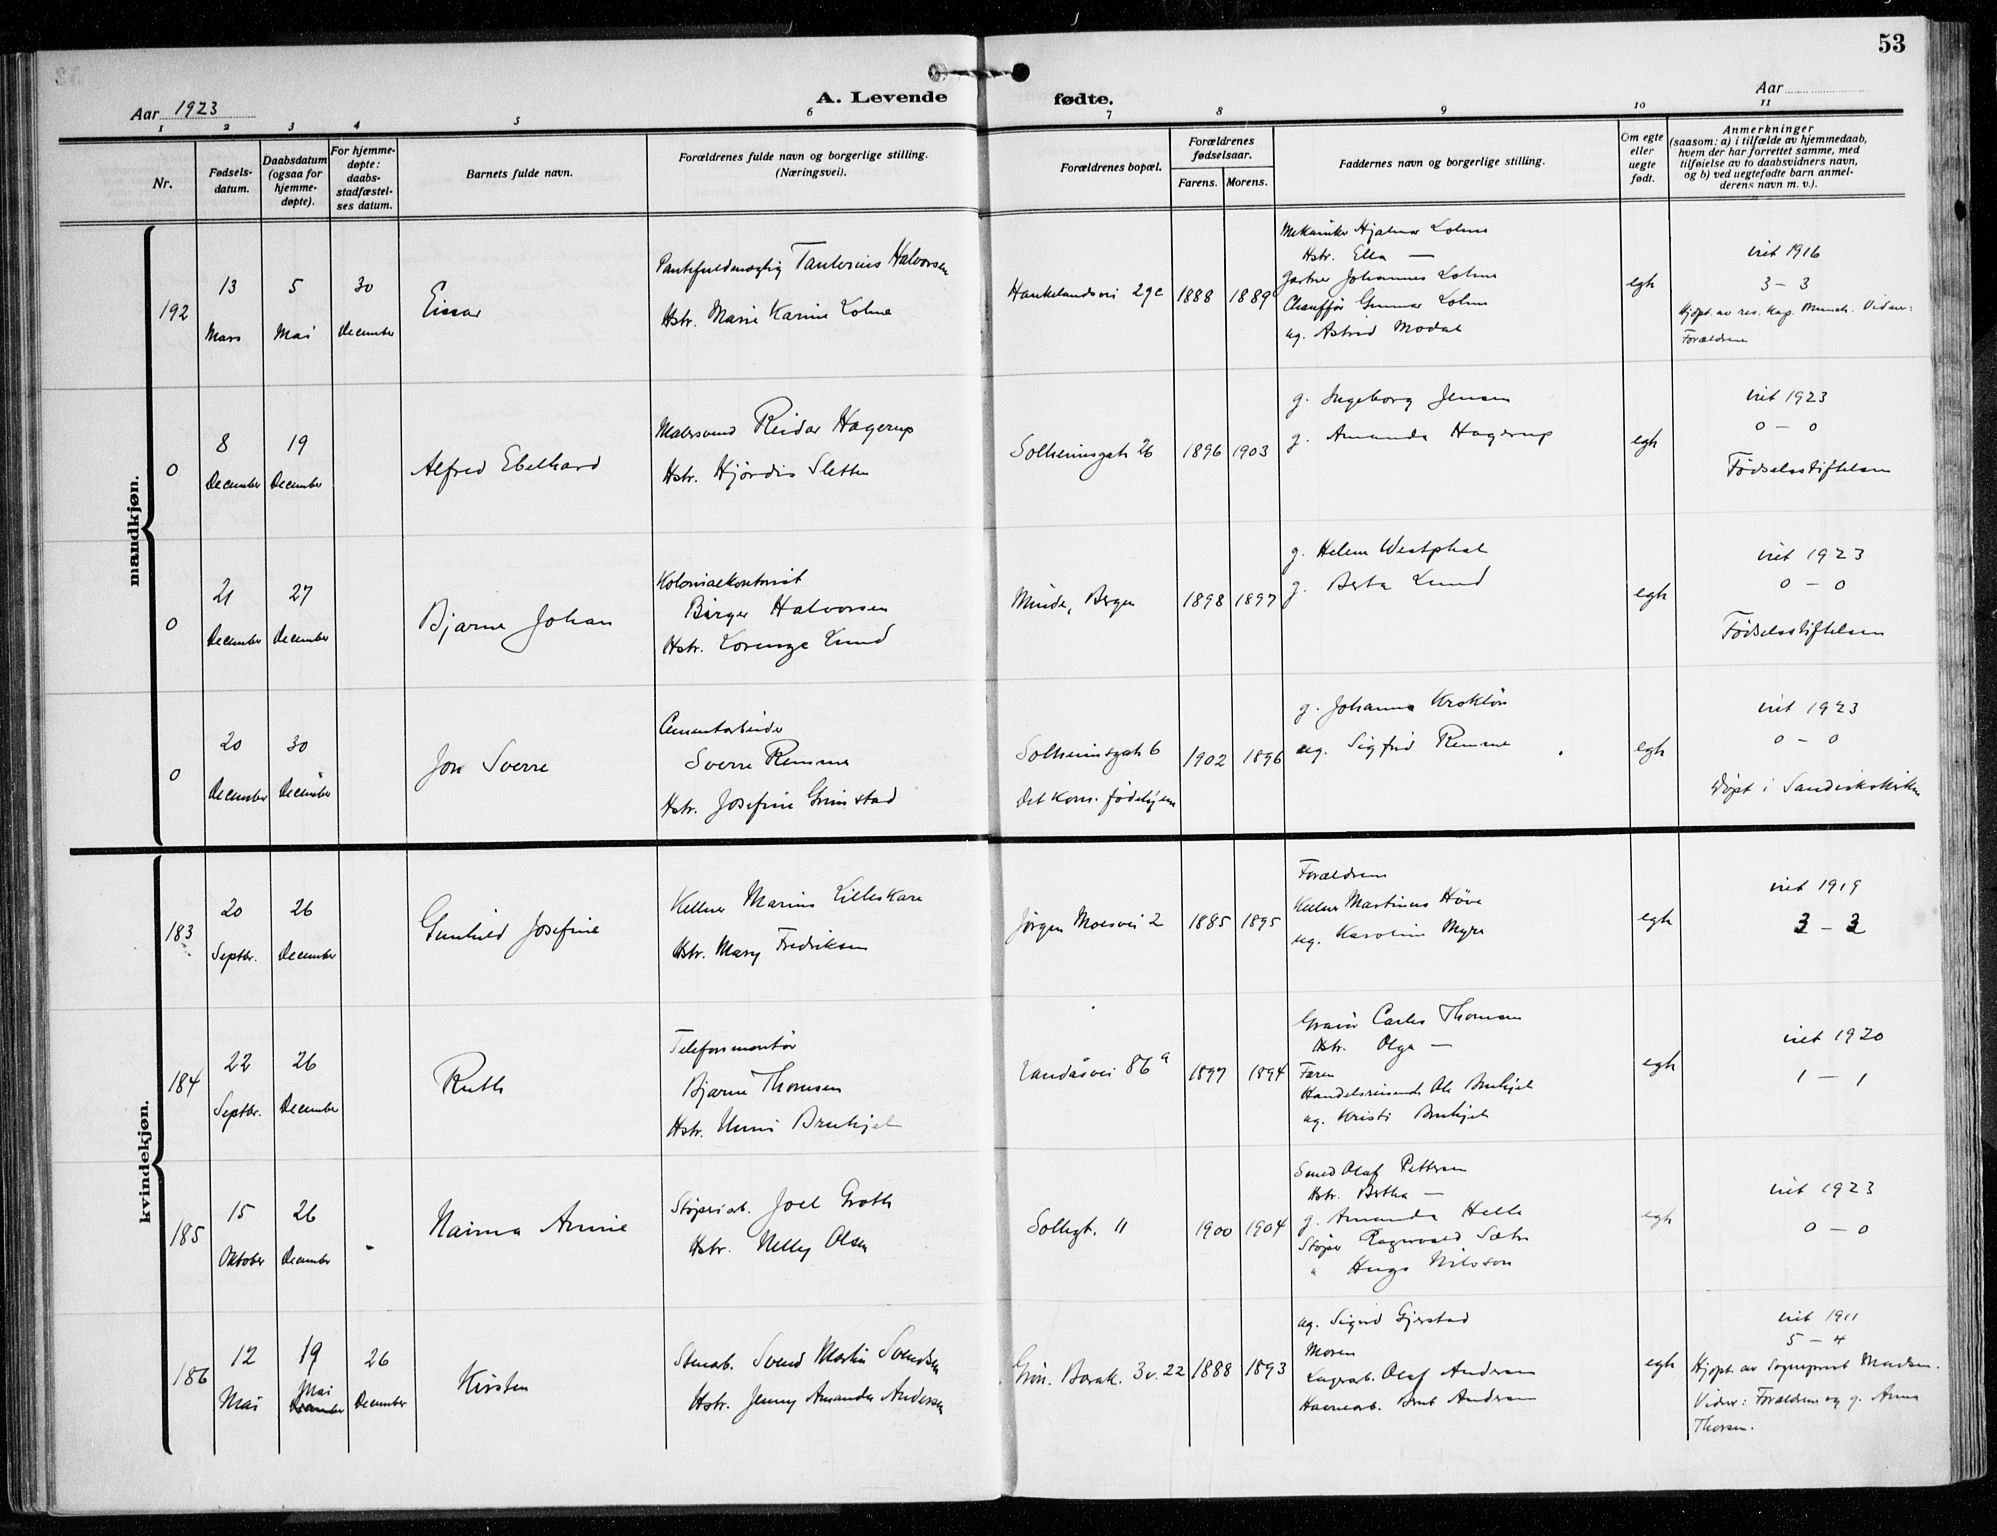 53
Aar 1923
A. Levende fødte.
Aar
1 2 3 4 5 6 7 8 9 10 11
Nr.
Fødselsdatum.
Daabsdatum (ogsaa for hjemmedøpte).
For hjemmedøpte: daabsstadfæstelses datum.
Barnets fulde navn.
Forældrenes fulde navn og borgerlige stilling. (Næringsvei).
Forældrenes bopæl.
Forældrenes fødselsaar.
Farens. Morens.
Faddernes navn og borgerlige stilling.
Om egte eller uegte født.
Anmerkninger
(saasom: a) i tilfælde av hjemmedaab,
hvem der har forrettet samme, med
tilføielse av to daabsvidners navn,
og b) ved uegtefødte barn anmelderens navn m. v.).
mandkjøn.
192
13 Mars
5 Mai
30 December
Einar
Halvorsen
Hstr. Marie Karine Lohne
Haukelandsvei 29c
1888 1889
Mekaniker Hjalmar Lohne
Hstr. Ella —
Gartner Johannes Lohne
Chauffør Gunnar Lohne
ug. Astrid Modal
egte
viet 1916
3 – 3
Hjdpt. av res. kap. Munch. Vidner:
Forældrene
0
8 December
19 December
Alfred Ebelhard
Malersvend Reidar Hagerup
Hstr. Hjørdis Sletten
Solheimsgate 26
1896 1903
g. Ingeborg Jensen
g. Amanda Hagerup
egte
viet 1923
0 – 0
Fødselsstiftelsen
0
21 December
27 December
Bjarne Johan
Kolonialkontorist
Birger Halvorsen
Hstr. Lorenze Lund
Minde, Bergen
1898 1897
g. Helene Westphal
g. Berta Lund
egte
viet 1923
0 – 0
Fødselsstiftelsen
0
20 December
30 December
Jon Sverre
Cementarbeider
Sverre Remme
Hstr. Josefine Grimstad
Solheimsgate 6
Det kom. fødehjem
1902 1896
g. Johanna
ug. Sigfrid Remme
egte
viet 1923
0 – 0
Døpt i Sandvikskirken
kvindekjøn.
183
20 Septbr.
26 December
Gunhild Josefine
Kelner Marius Lilleskare
Hstr. Mary Fredriksen
Jørgen Moesvei 2
1885 1895
Forældrene
Kelner Martinus Høve
ug. Karoline Myre
egte
viet 1919
184
22 Septbr.
26 December
Ruth
Telefonmontør
Bjarne Thomsen
Hstr. Unni
Landåsvei 86a
1897 1894
Gravør Carlos Thomsen
Hstr. Olga —
Faren
Handelsreisende Ole
ug. Kristi
egte
viet 1920
1 – 1
185
15 Oktober
26 December
Naima Annie
Støperiarb. Joel Groth
Hstr. Nelly Olsen
Sollegt. 11
1900 1904
Smed Olaf Pettersen
Hstr. Bertha —
g. Amanda Helle
Støper Ragnvald Sætre
" Hugo Nilsson
egte
viet 1923
0 – 0
186
12 Mai
19 Mai
26 December
Kirsten
Stenarb. Svend Martin Svendsen
Hstr. Jenny Amanda Andersen
Grøn. Barak. 3 v. 22
1888 1893
ug. Sigrid Gjerstad
Moren
Lagerarb. Olaf Andersen
Havnearb. Bernt Andersen
egte
viet 1911
5 – 4
Hjdpt. av Sogneprest Madsen.
Vidner: Forældrene og g. Anna
Thorsen.